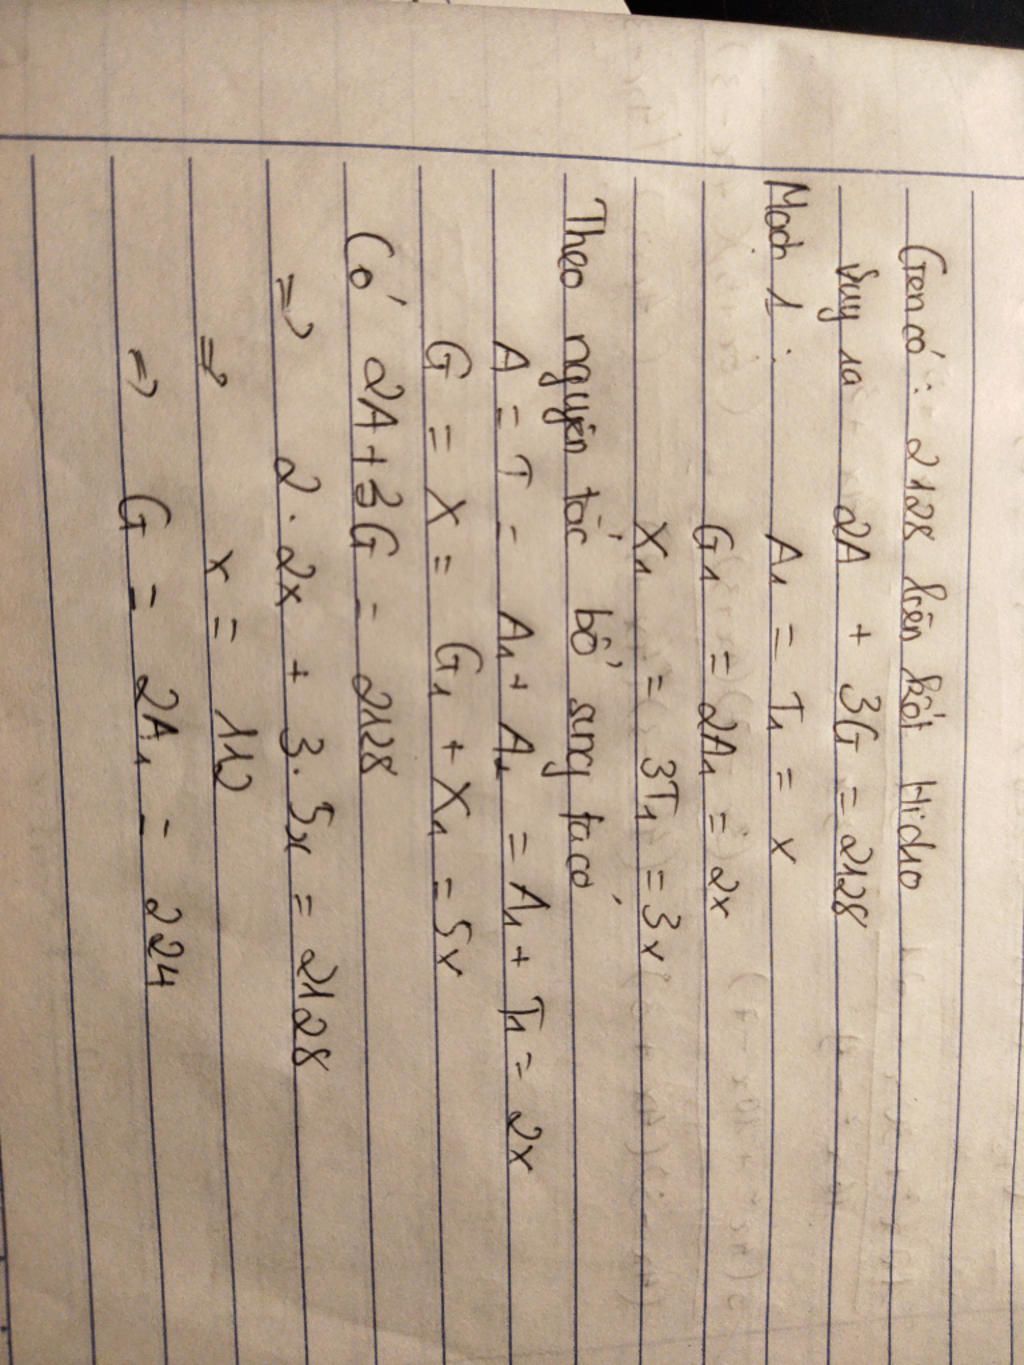 Gen có : 2128 liên kết Hidro
Suy ra 2A + 3G = 2128
Mạch 1 : A₁ = T₁ = x
G₁ = 2A₁ = 2x
X₁ = 3T₁ = 3x
Theo nguyên tắc bổ sung ta có
A = T = A₁ + A₂ = A₁ + T₁ = 2x
G = X = G₁ + X₁ = 5x
Có 2A + 3G = 2128
=> 2.2x + 3.5x = 2128
=> x = 112
=> G = 2A₁ = 224